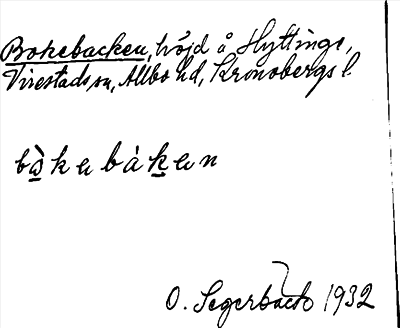 Bokebacken, höjd å Hyttinge,
Virestads sn, Allbo hd, Kronobergs l.
bo̱̊̀keba̍ḵen
O. Segerbäck 1932